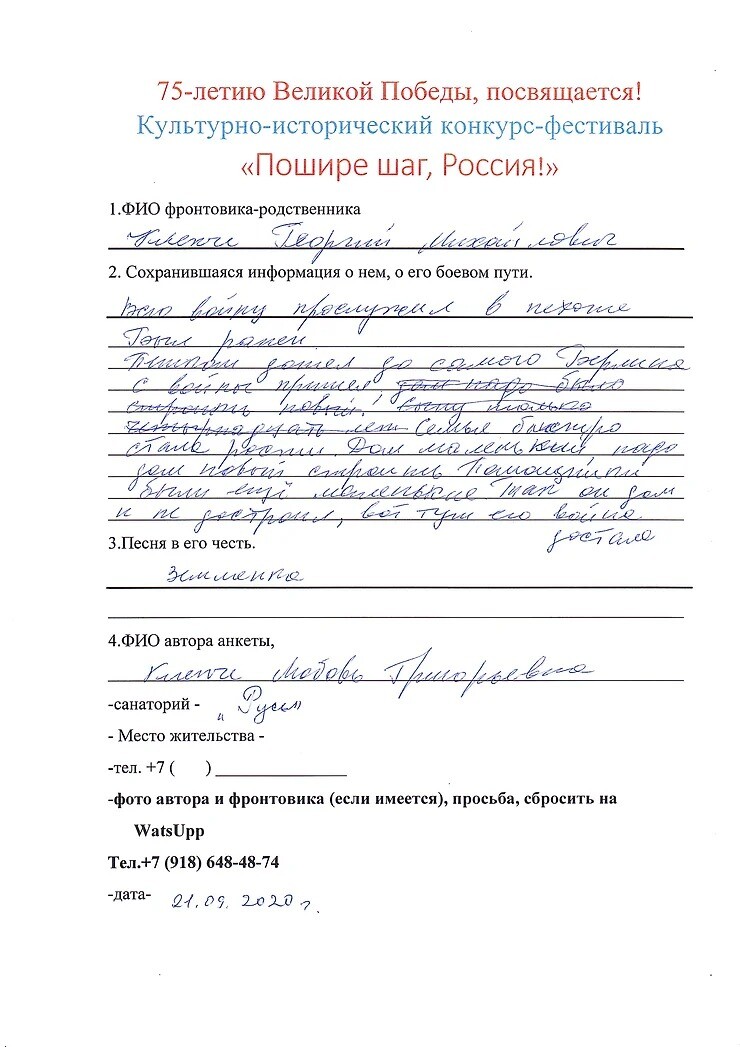 75-летию Великой Победы, посвящается!
Культурно-исторический конкурс-фестиваль
«Пошире шаг, Россия!»
1.ФИО фронтовика-родственника
Георгий Михайлович
2. Сохранившаяся информация о нем, о его боевом пути.
Всю войну прослужил в пехоте
Был ранен
Пешком дошел до самого Берлина
С войны пришел дом надо было
строить новый! Сыну только
четырнадцать лет Семья быстро
стала расти. Дом маленький надо
дом новый строить Помощники
были ещё маленькие Так он дом
и не достроил, вот тут его война
достала
3.Песня в его честь.
Землянка
4.ФИО автора анкеты,
Любовь Григорьевна
-санаторий - „Русь"
- Место жительства -
-тел. +7 ( )
-фото автора и фронтовика (если имеется), просьба, сбросить на
WatsUpp
Тел.+7 (918) 648-48-74
-дата- 21.09.2020 г.